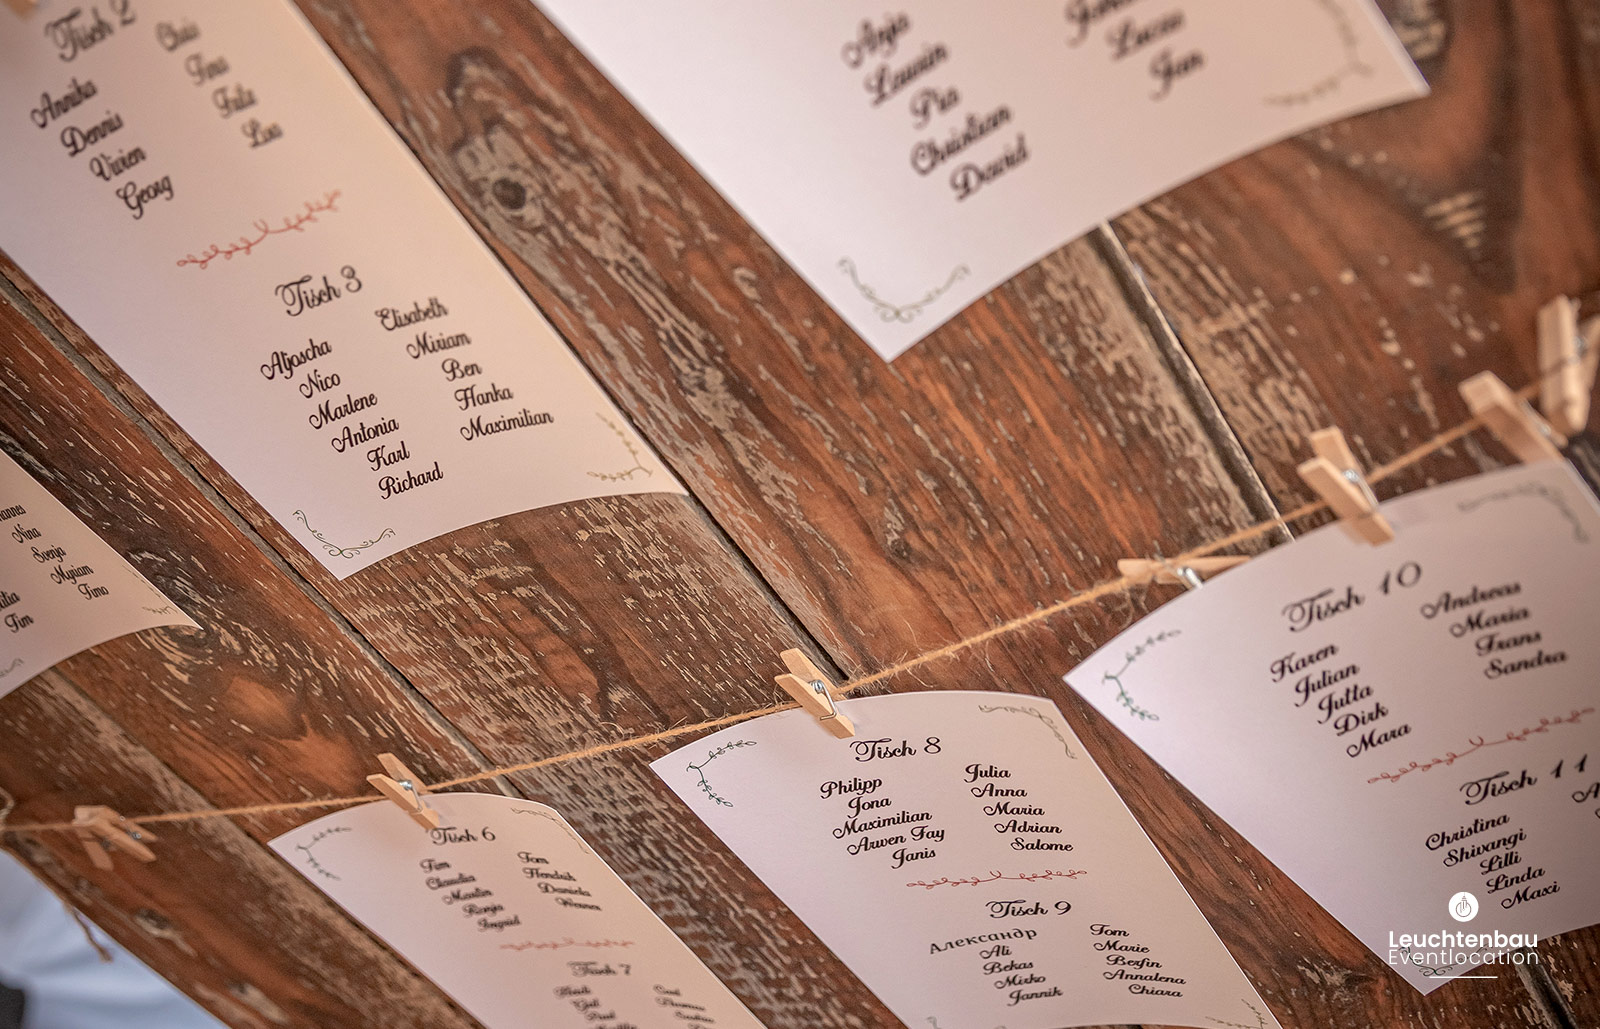 Tisch 2
Annika
Dennis
Vivien
Georg
Chris
Lea
Tisch 3
Aljoscha
Nico
Marlene
Antonia
Karl
Richard
Elisabeth
Miriam
Ben
Hanka
Maximilian
Nina
Svenja
Myriam
Timo
Tim
Anja
Laurin
Pia
Christian
David
Lucas
Jan
Tisch 6
Tim
Claudia
Martin
Ronja
Ingrid
Tom
Hendrik
Daniela
Werner
Tisch 7
Tisch 8
Philipp
Jona
Maximilian
Arwen Fay
Janis
Julia
Anna
Maria
Adrian
Salome
Tisch 9
Александр
Ali
Bekas
Mirko
Jannik
Tom
Marie
Berfin
Annalena
Chiara
Tisch 10
Karen
Julian
Jutta
Dirk
Mara
Andreas
Maria
Frans
Sandra
Tisch 11
Christina
Shivangi
Lilli
Linda
Maxi
Leuchtenbau
Eventlocation